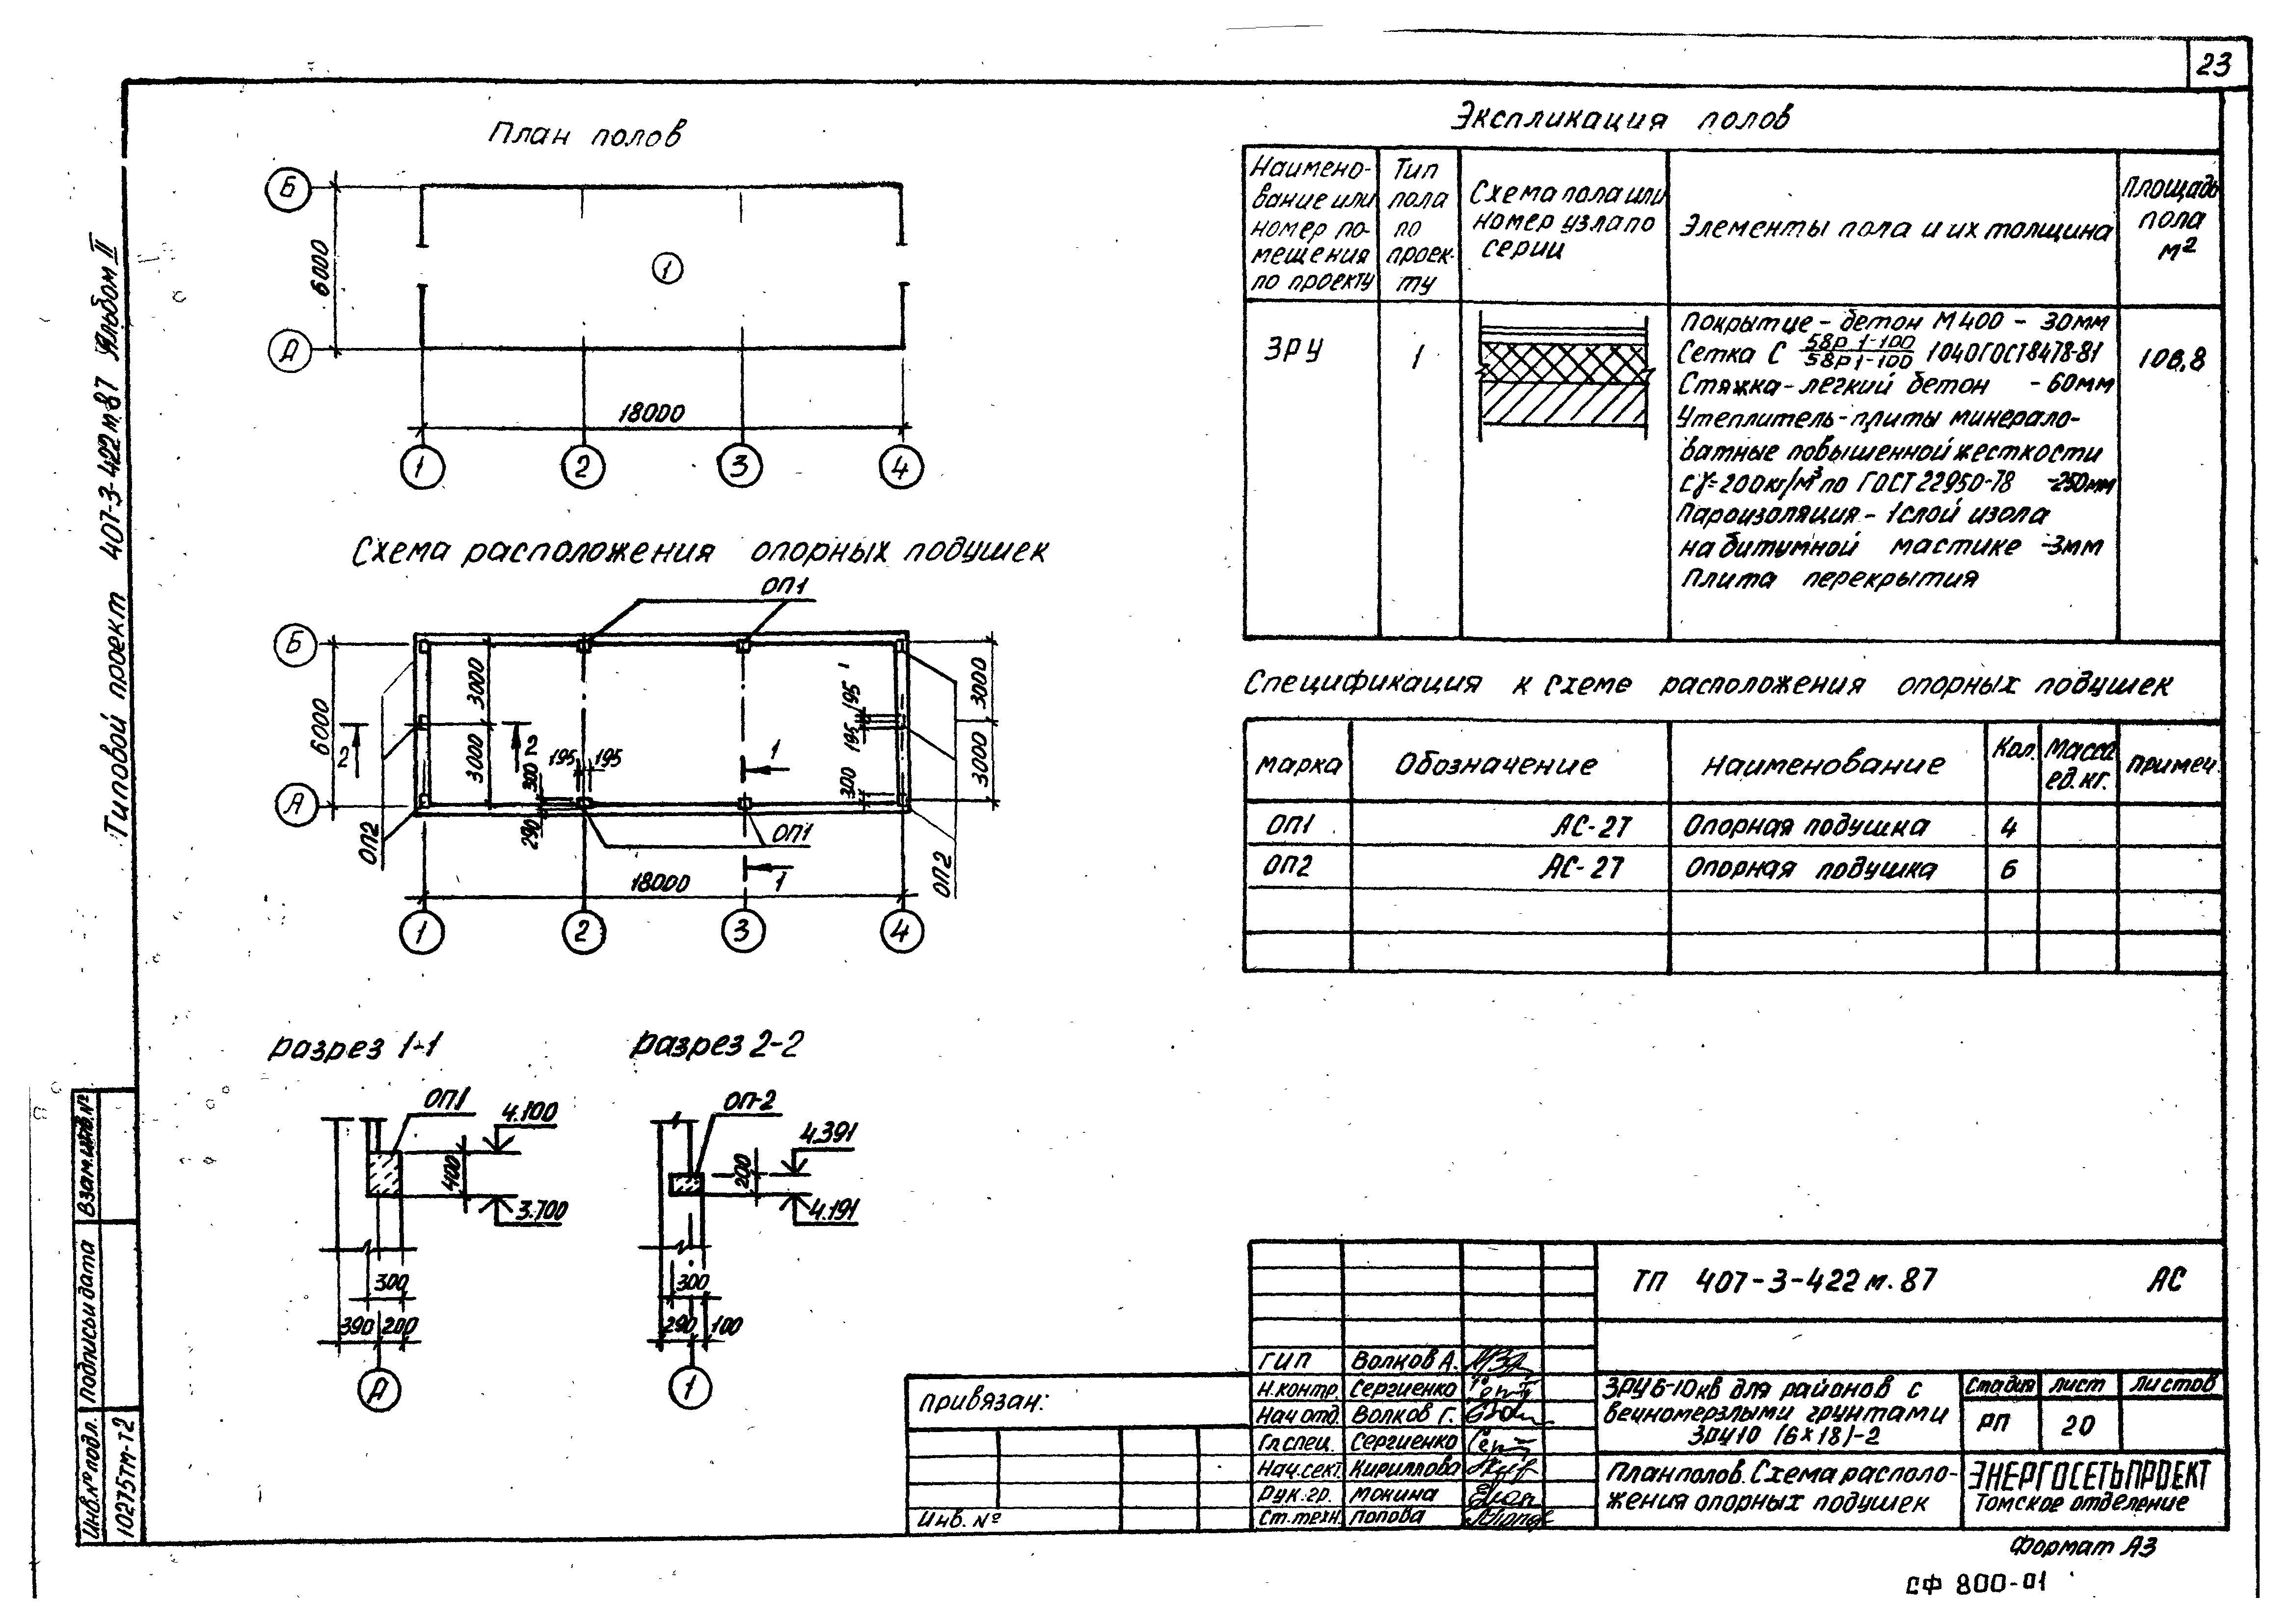 23
План полов
Б
А
6000
1
18000
1
2
3
4
Схема расположения опорных подушек
ОП1
Б
А
6000
3000
3000
2
2
195
195
300
290
1
1
195
195
300
3000
3000
ОП2
ОП1
ОП2
18000
1
2
3
4
разрез 1-1
ОП1
4.100
400
3.700
300
390
200
А
разрез 2-2
ОП-2
4.391
200
4.191
300
290
100
1
Экспликация полов
Наимено-
вание или
номер по-
мещения
по проекту
Тип
пола
по
проек-
ту
Схема пола или
номер узла по
серии
Элементы пола и их толщина
Площадь
пола
м2
ЗРУ
1
Покрытие - бетон М400 - 30мм
Сетка С 58р1-100/58р1-100 1040 ГОСТ8478-81
Стяжка - легкий бетон - 60мм
Утеплитель - плиты минерало-
ватные повышенной жесткости
с γ=200кг/м3 по ГОСТ 22950-78 -250мм
Пароизоляция - 1слой изола
на битумной мастике -3мм
Плита перекрытия
108,8
Спецификация к схеме расположения опорных подушек
Марка
Обозначение
Наименование
Кол.
Масса
ед.кг.
Примеч.
ОП1 АС-27 Опорная подушка 4
ОП2 АС-27 Опорная подушка 6
ТП 407-3-422м.87 АС
ГИП Волков А.
Н.контр. Сергиенко
Нач отд. Волков Г.
Гл спец. Сергиенко
Нач.сект. Кириллова
Рук.гр. Мокина
Ст.техн. Попова
ЗРУ 6-10кв для районов с
вечномерзлыми грунтами
ЗРУ10 (6×18)-2
Стадия
Лист
Листов
РП
20
План полов. Схема располо-
жения опорных подушек
ЭНЕРГОСЕТЬПРОЕКТ
Томское отделение
Привязан:
Инв. №
Формат А3
СФ 800-01
Типовой проект 407-3-422м.87 Альбом II
Взам.инв.№
Подпись и дата
Инв.№ подл.
10275тм-т2